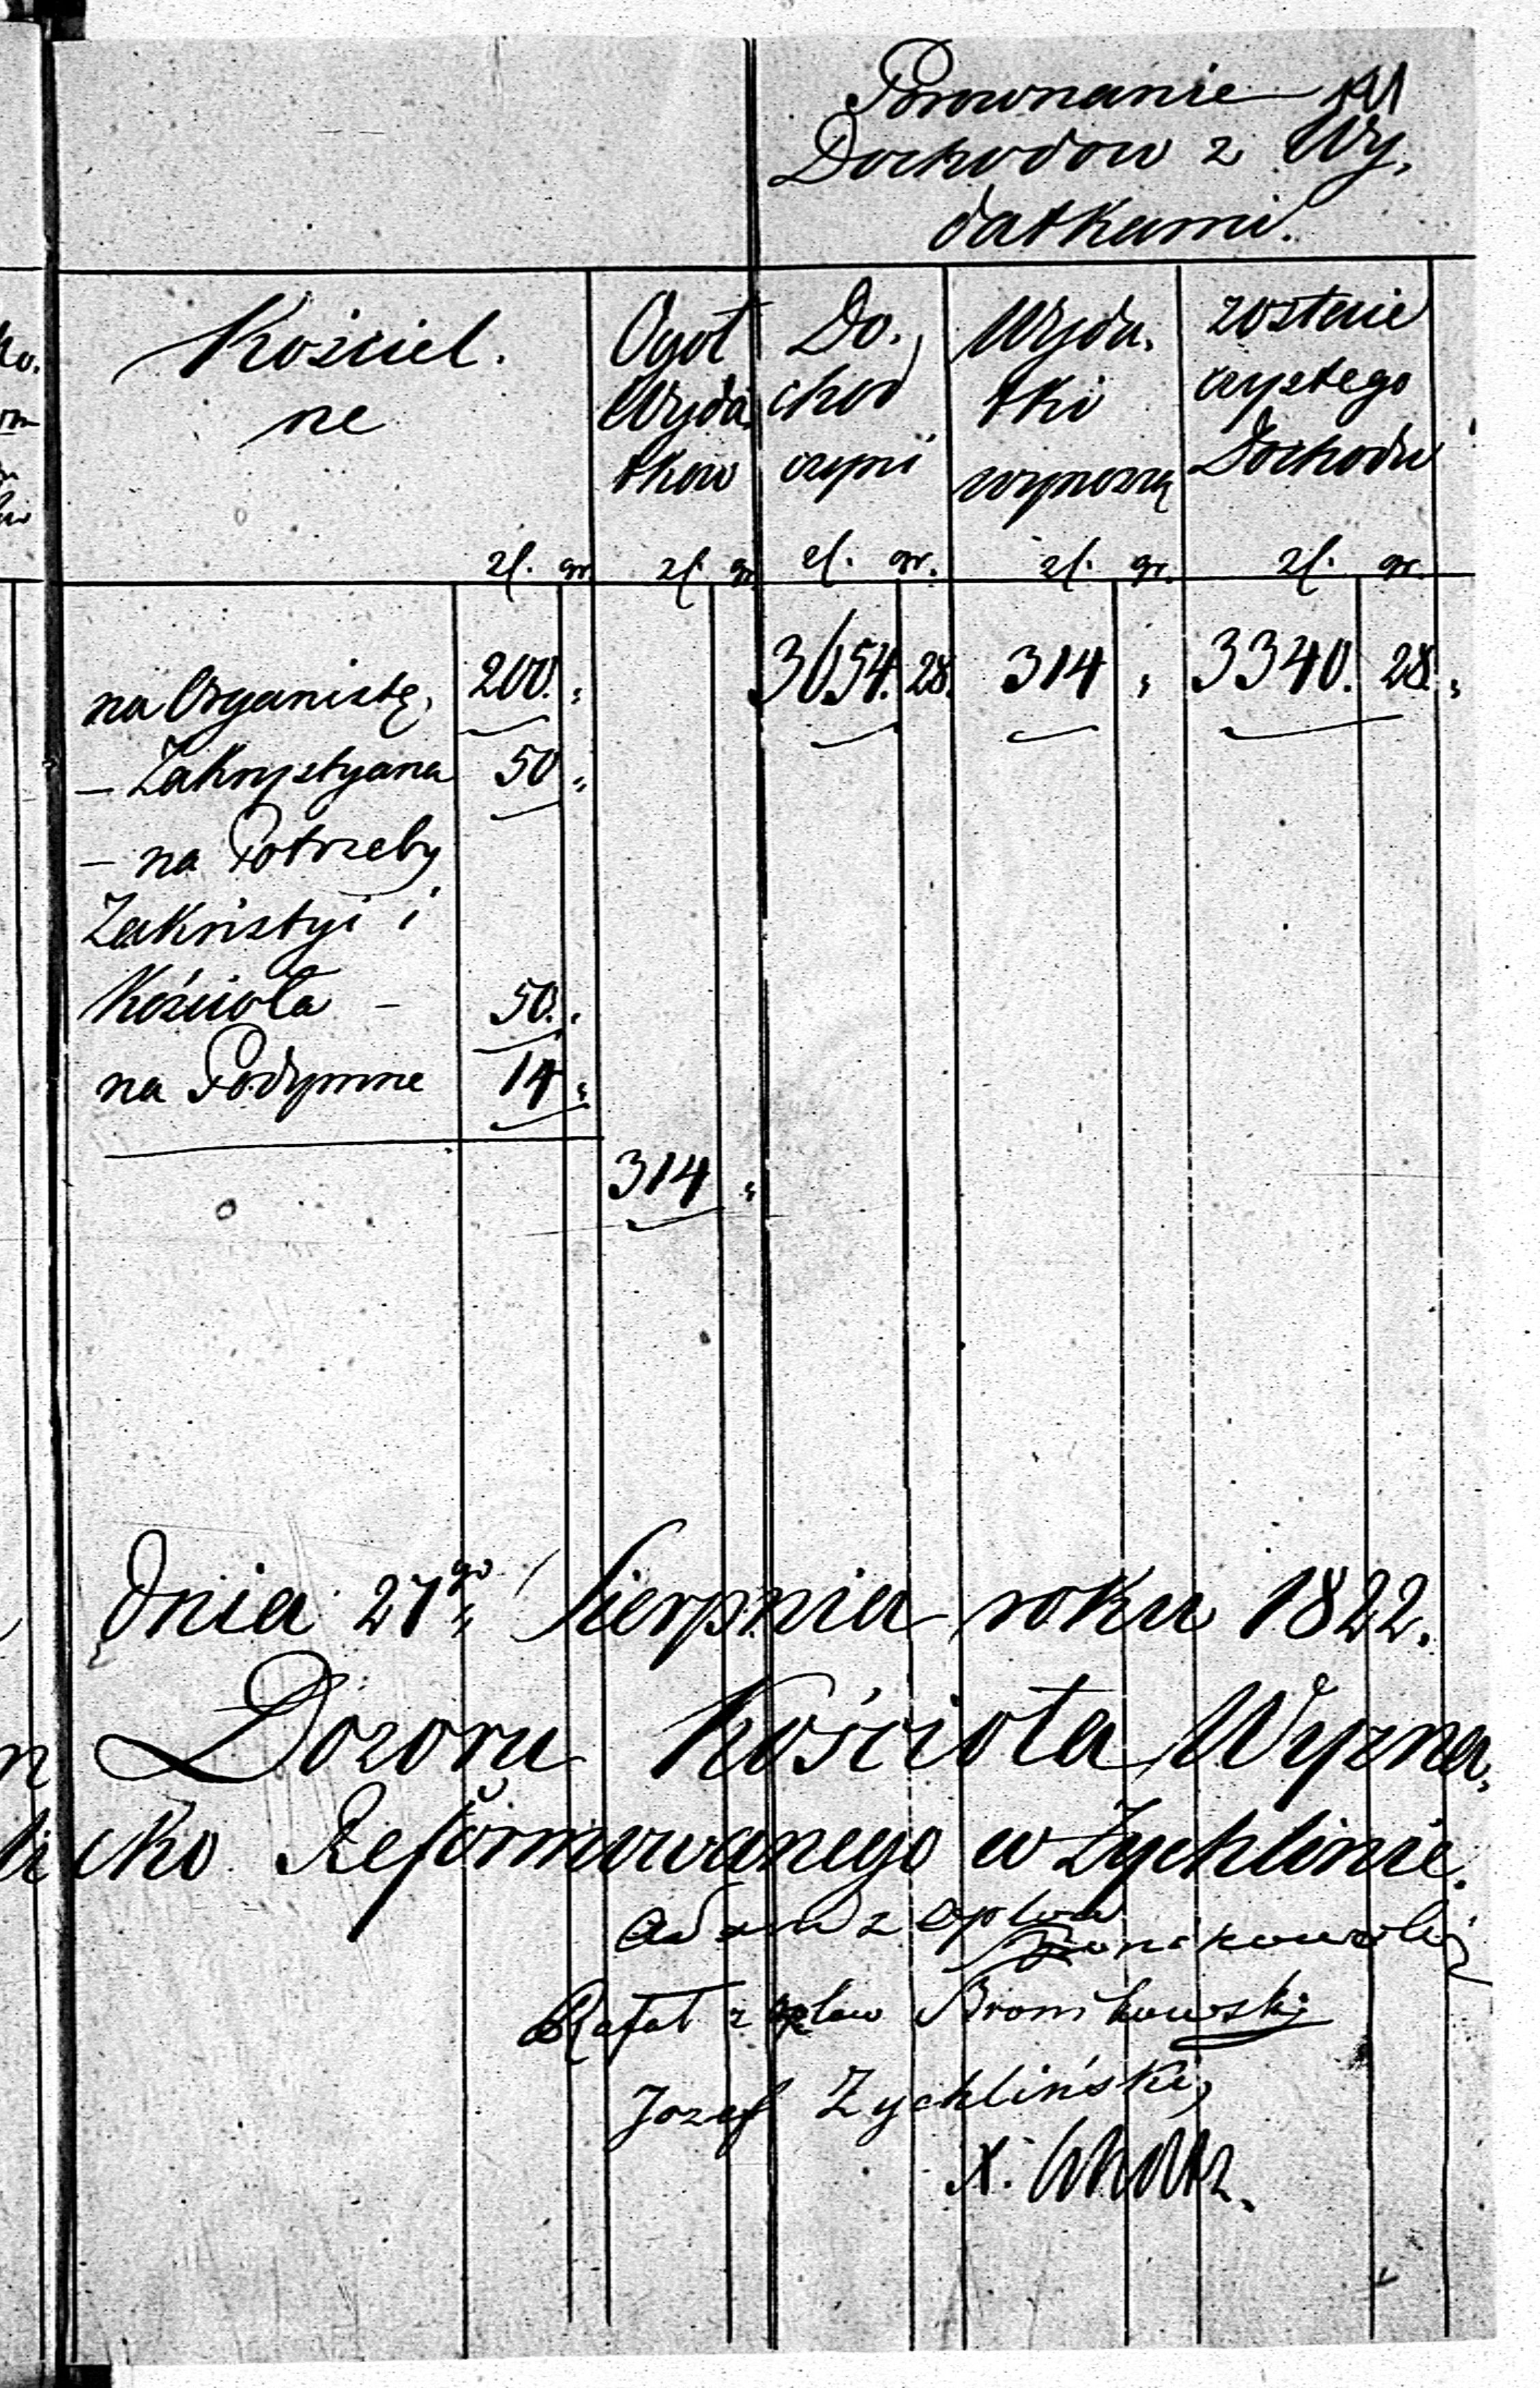 Porownanie 191
Dochodow z Wy,
datkami.
Kościel.
ne
zł. gr
Ogoł
Wyda,
tkow
zł. gr
Do,
chod
czyni
zł. gr.
Wyda.
tki
wynoszą
zł. gr.
zostaie
czystego
Dochodu
zł. gr.
na Organistę, 200. „ 3654. 28. 314 „ 3340. 28. „
– Zakrystyana 50 „
– na Potrzeby
Zakristyi i
Kościoła – 50. „
na Podymne 14 „
314 „
dnia 27go Sierpnia roku 1822.
Dozoru Kościoła Wyzna,
cko Reformowanego w Zychlinie.
Adam z Oplow
Bronikowski
Rafał z Oplow Bronikowski
Jozef Zychliński,
X.